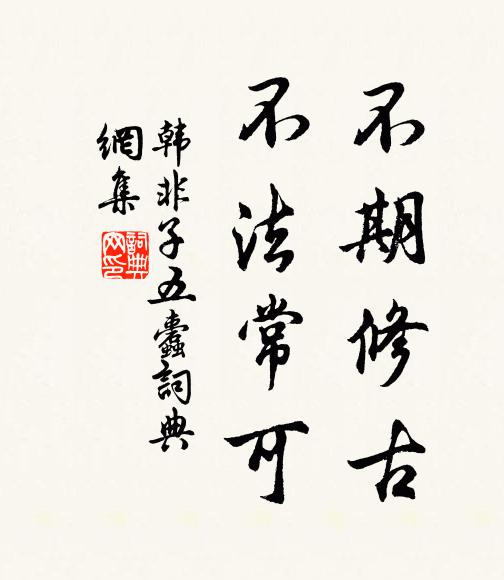 不期修古
不法常可
韩非子五蠹詞典
網集
詞典
网印